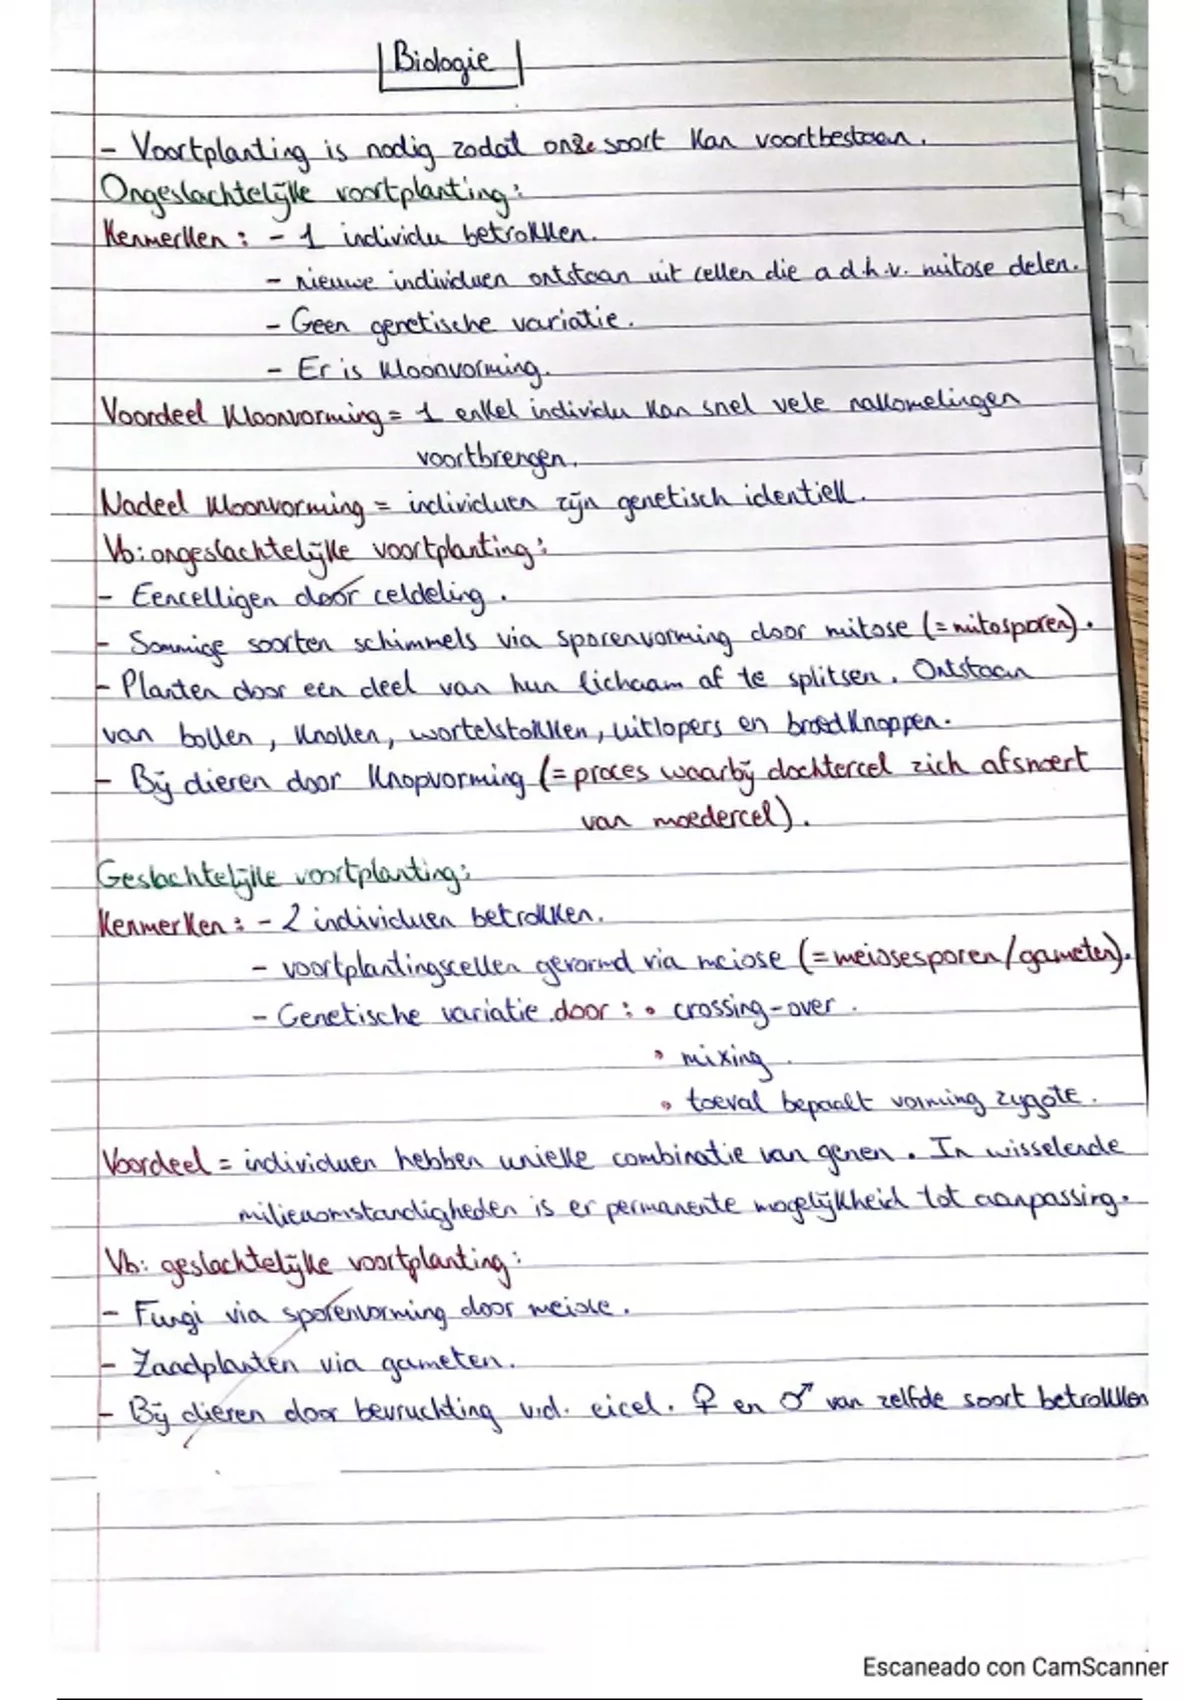 Biologie
- Voortplanting is nodig zodat onze soort kan voortbestaan.
Ongeslachtelijke voortplanting:
Kenmerken: - 1 individu betrokken.
- nieuwe individuen ontstaan uit cellen die a.d.h.v. mitose delen.
- Geen genetische variatie.
- Er is kloonvorming.
Voordeel kloonvorming = 1 enkel individu kan snel vele nakomelingen
voortbrengen.
Nadeel kloonvorming = individuen zijn genetisch identiek.
Vb: ongeslachtelijke voortplanting:
- Eencelligen door celdeling.
- Sommige soorten schimmels via sporenvorming door mitose (= mitosporen).
- Planten door een deel van hun lichaam af te splitsen. Ontstaan
van bollen, knollen, wortelstokken, uitlopers en broedknoppen.
- Bij dieren door knopvorming (= proces waarbij dochtercel zich afsnoert
van moedercel).
Geslachtelijke voortplanting:
Kenmerken: - 2 individuen betrokken.
- voortplantingscellen gevormd via meiose (= meiosesporen/gameten).
- Genetische variatie door: • crossing-over.
• mixing.
• toeval bepaalt vorming zygote.
Voordeel = individuen hebben unieke combinatie van genen. In wisselende
milieuomstandigheden is er permanente mogelijkheid tot aanpassing.
Vb: geslachtelijke voortplanting:
- Fungi via sporenvorming door meiose.
- Zaadplanten via gameten.
- Bij dieren door bevruchting v.d. eicel. ♀ en ♂ van zelfde soort betrokken
Escaneado con CamScanner